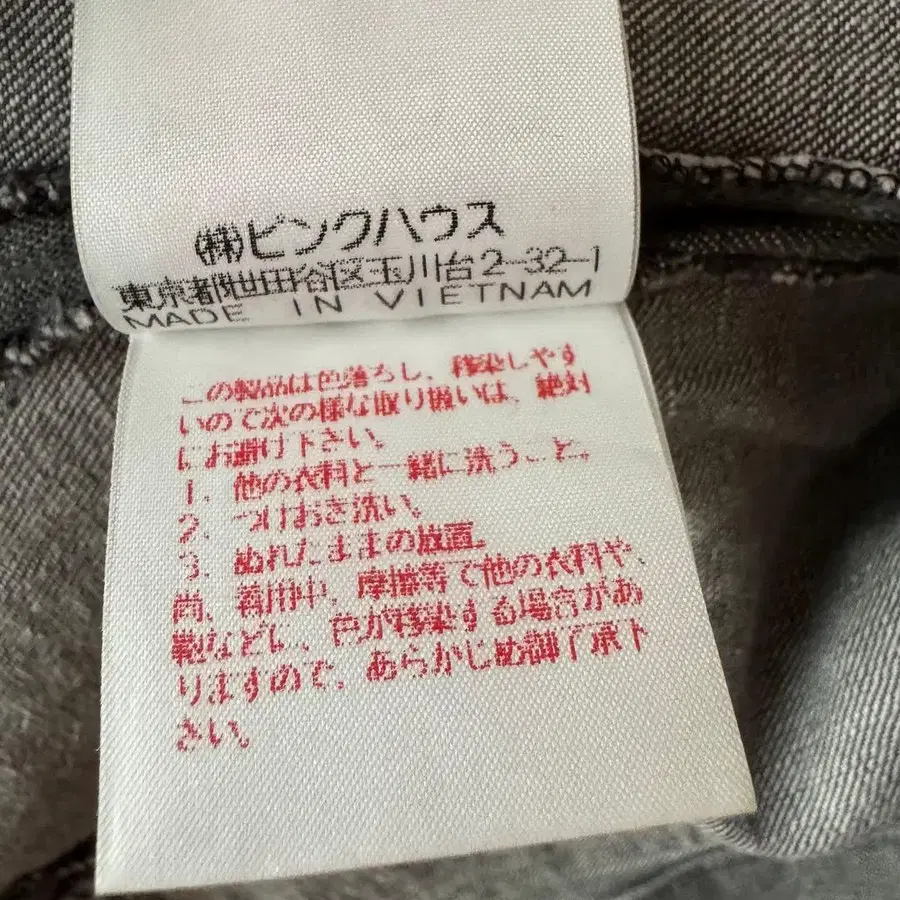 ㈱ピンクハウス
東京都世田谷区玉川台2-32-1
MADE IN VIETNAM
この製品は色落ちし、移染しやす
いので次の様な取り扱いは、絶対
にお避け下さい。
1、他の衣料と一緒に洗うこと。
2、つけおき洗い。
3、ぬれたままの放置。
尚、着用中、摩擦等で他の衣料や、
鞄などに、色が移染する場合があ
りますので、あらかじめ御了承下
さい。